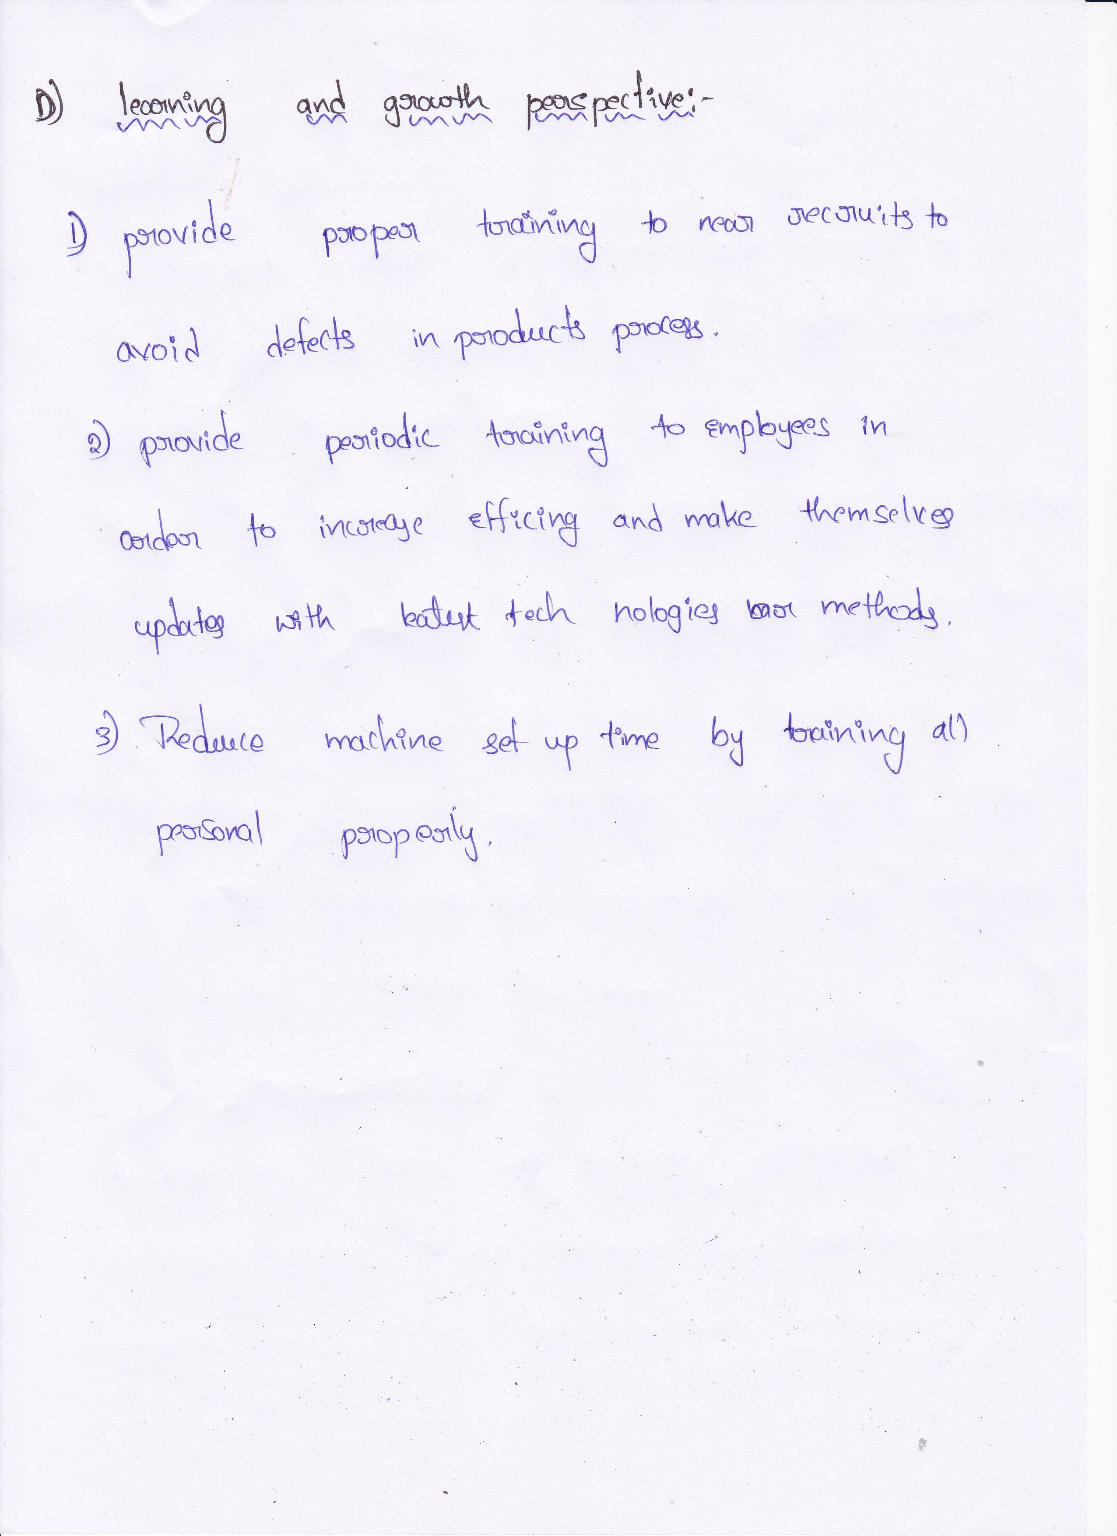 D) learning and growth perspective:-
1) provide proper training to near recruits to
avoid defects in products process.
2) provide periodic training to employees in
order to increase efficing and make themselves
updates with latest tech nologies methods.
3) Reduce machine set up time by training all
personal properly.